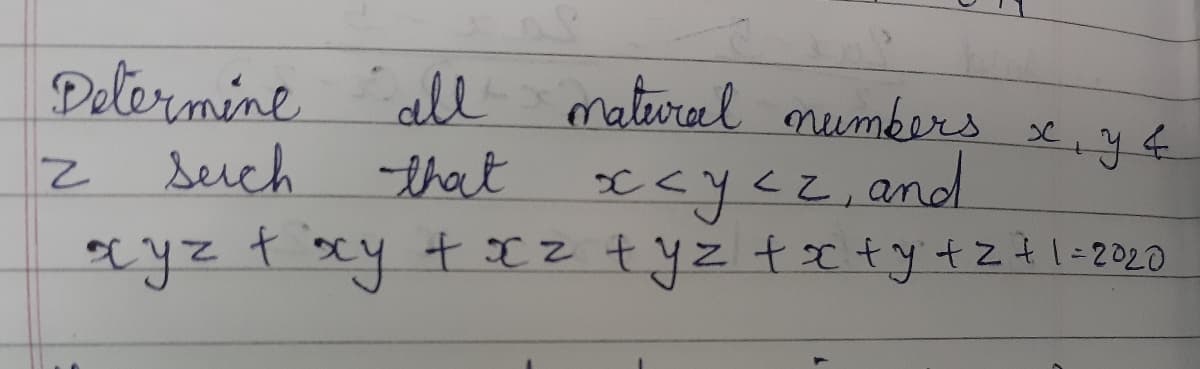 Determine all natural numbers x, y &
z such that x < y < z, and
xyz + xy + xz + yz + x + y + z + 1 = 2020